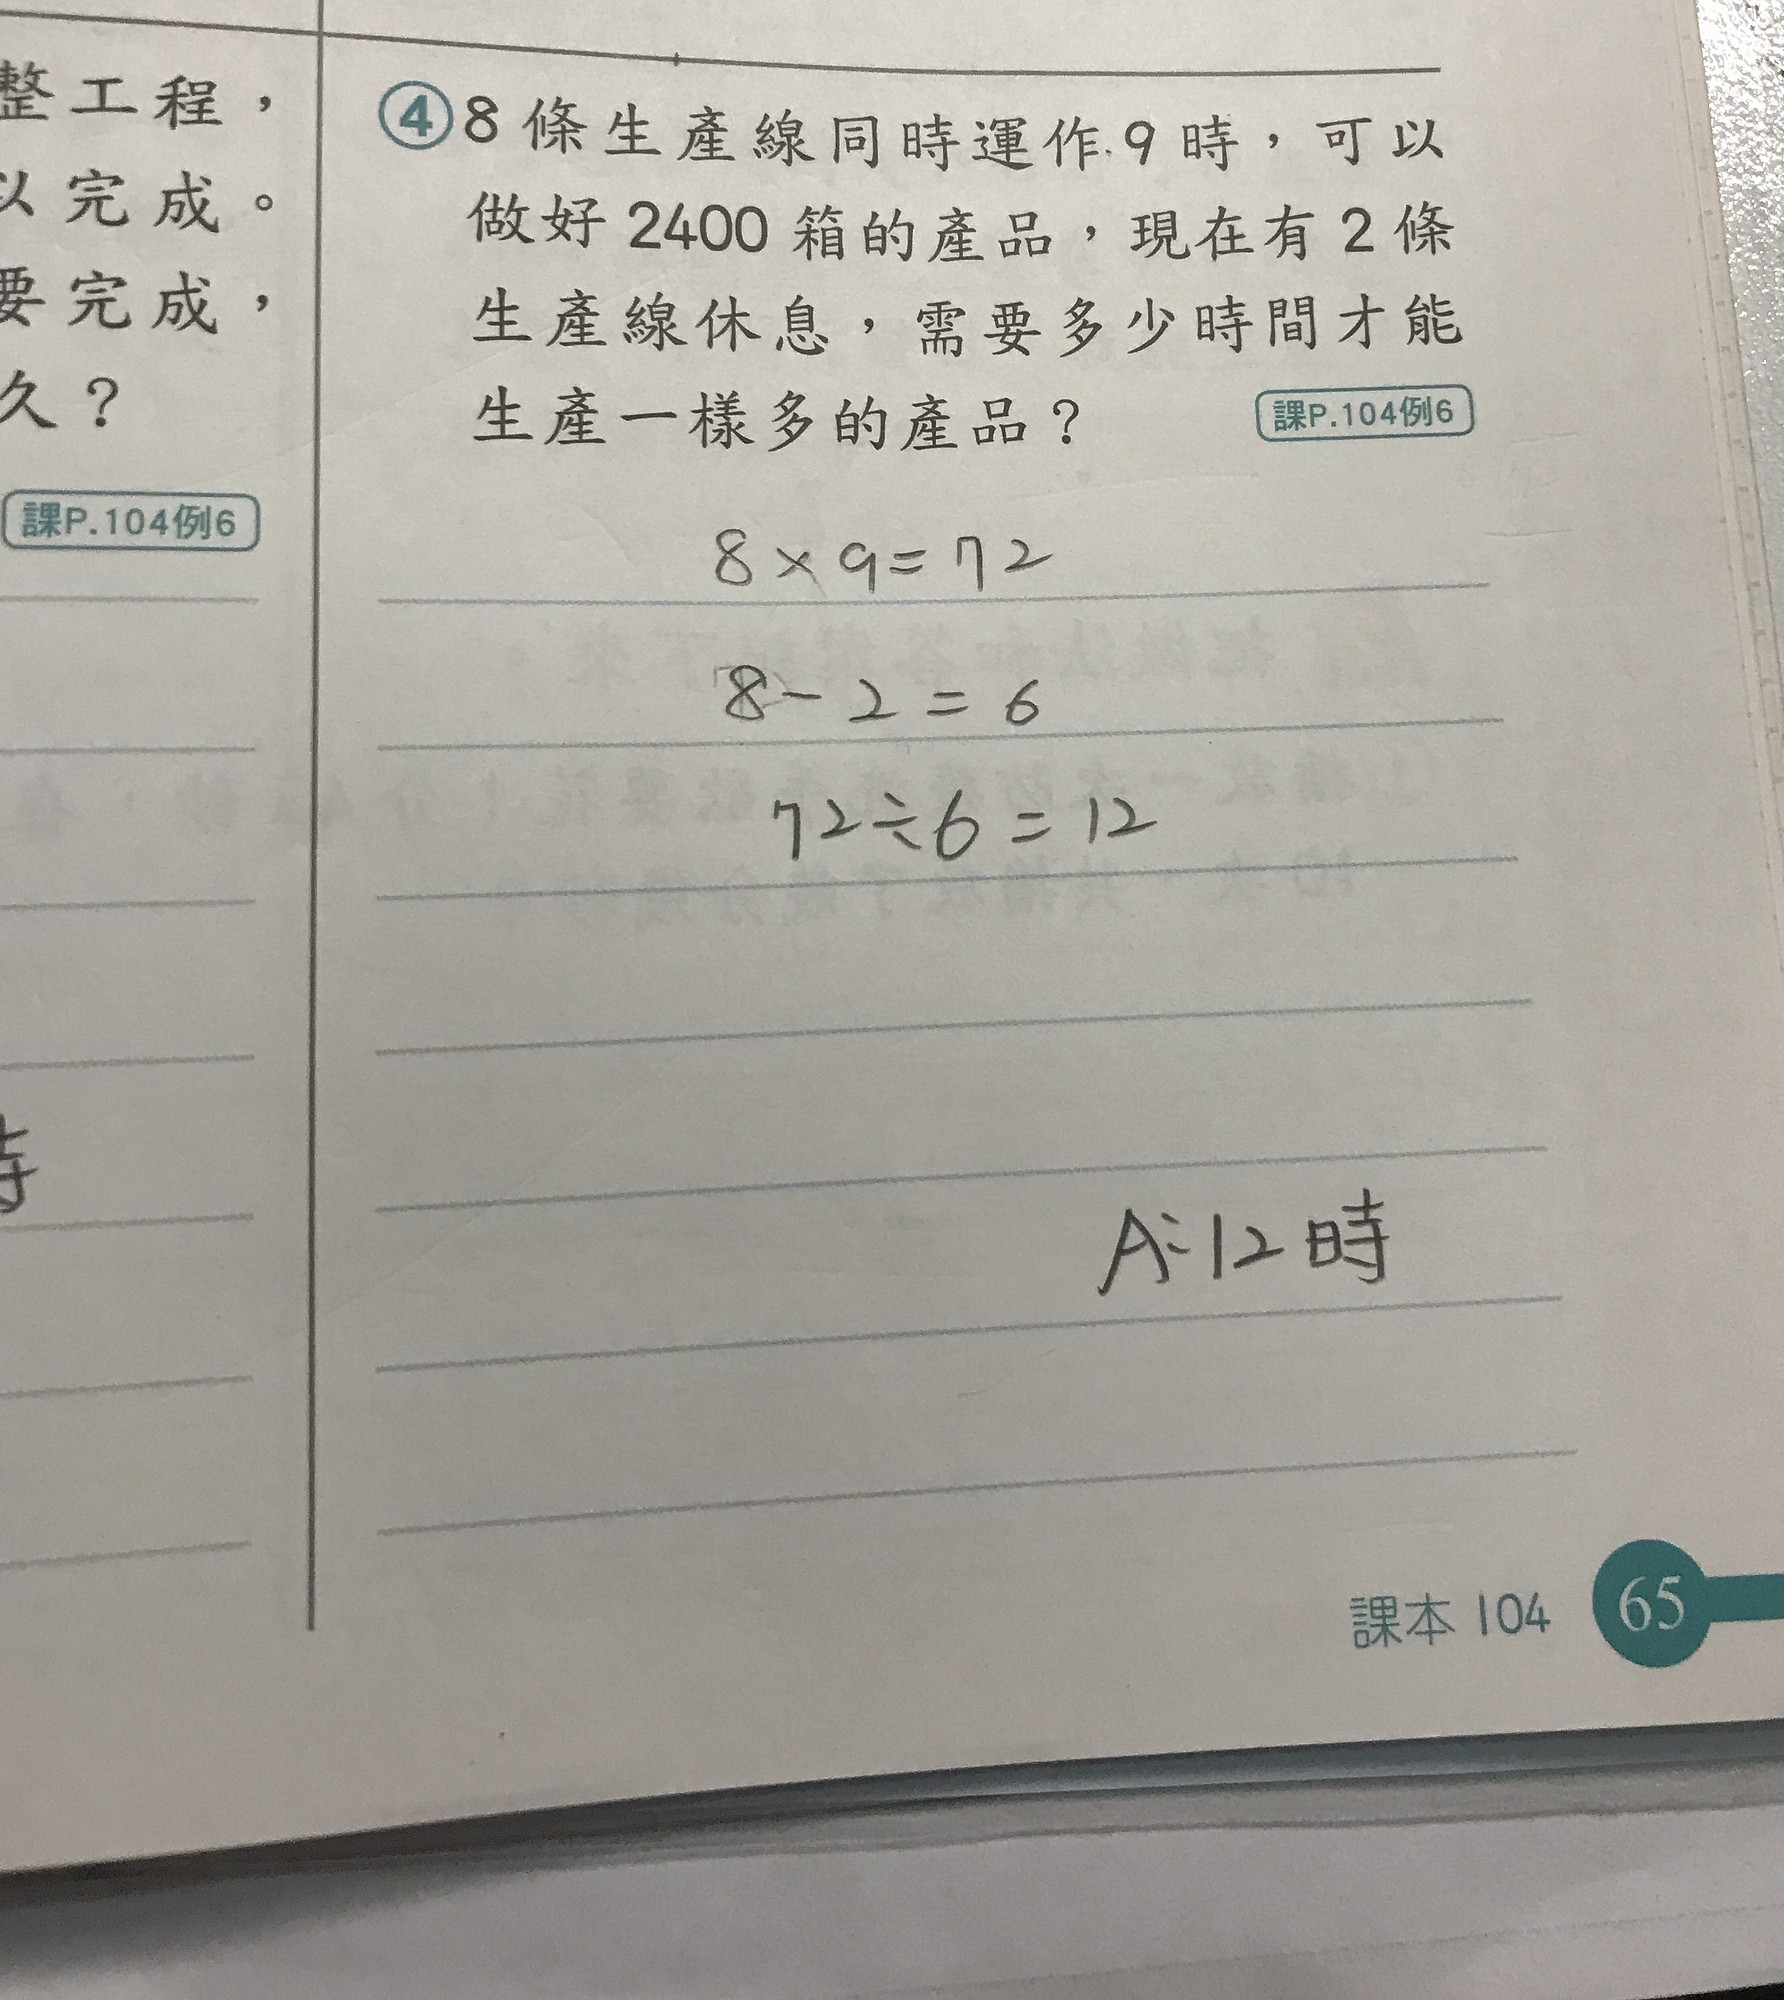 整工程，
以完成。
要完成，
久？
課P.104例6
時
④8條生產線同時運作9時，可以
做好2400箱的產品，現在有2條
生產線休息，需要多少時間才能
生產一樣多的產品？
課P.104例6
8×9=72
8-2=6
72÷6=12
A:12時
課本104
65